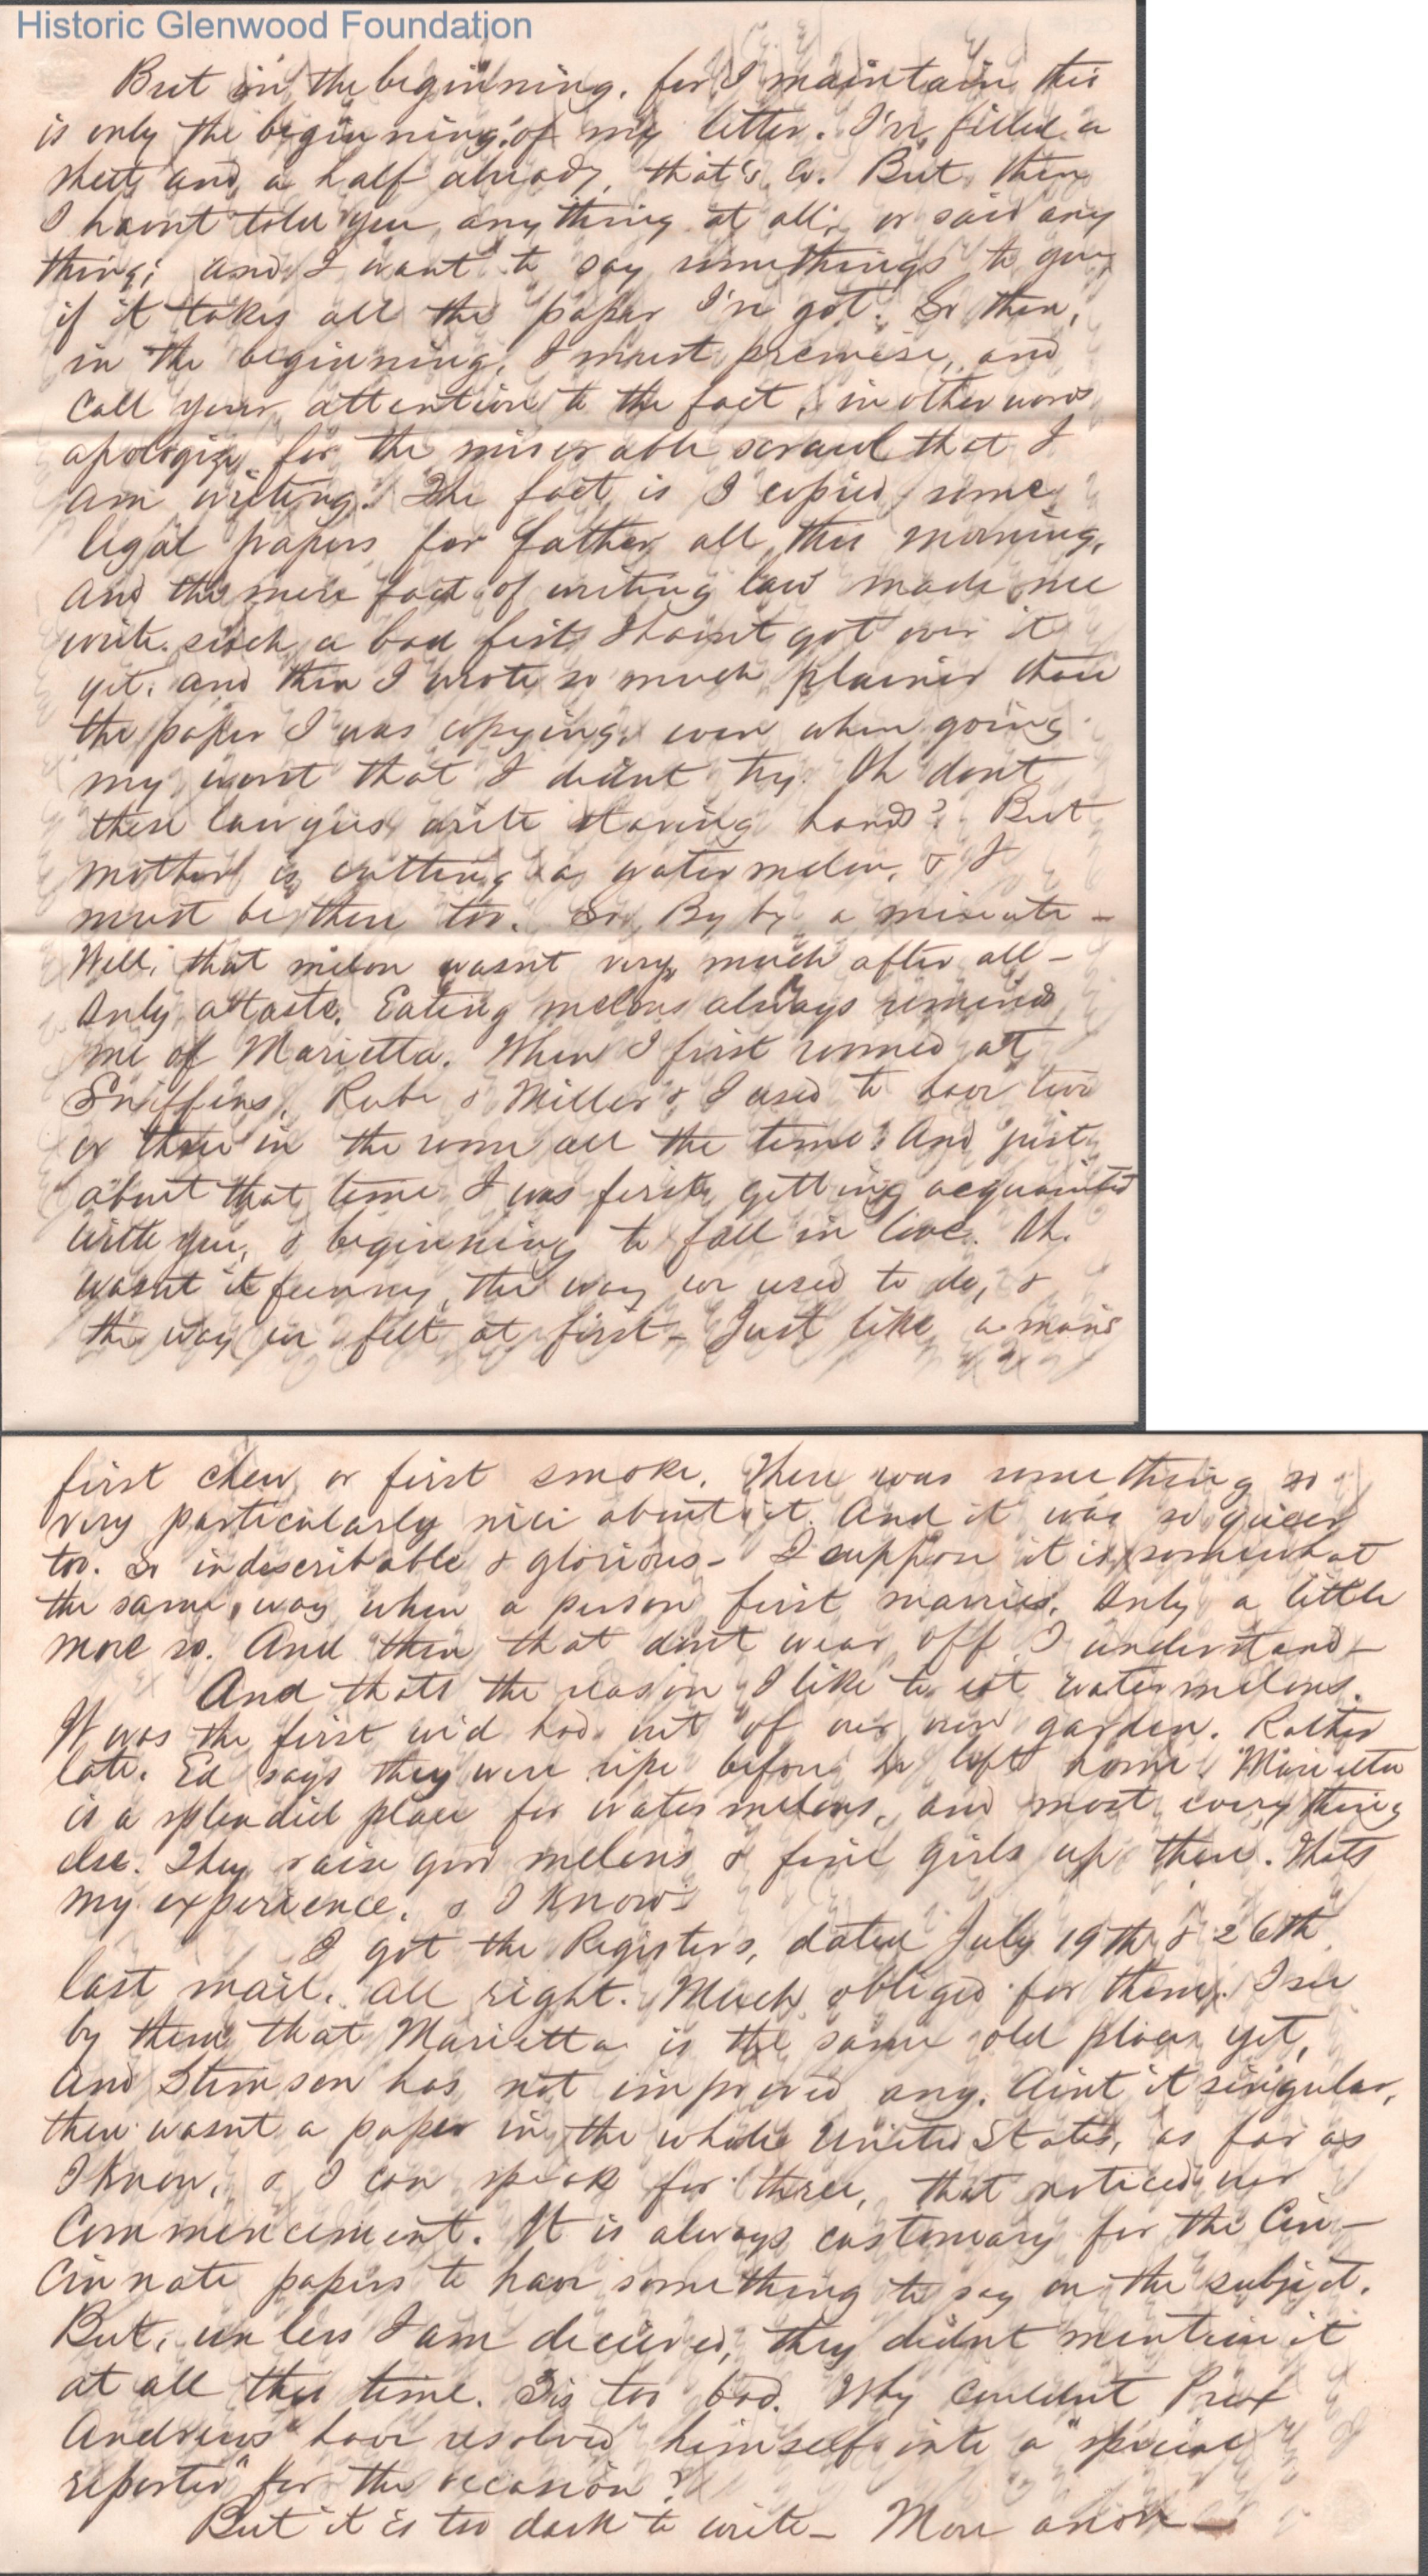 Historic Glenwood Foundation
But in the beginning. for I maintain this
is only the beginning of my letter. I've filled a
sheet and a half already, that's so. But then
I haint told you anything at all, or said any
thing; and I want to say somethings to you,
if it takes all the paper I've got. So then,
in the beginning, I must premise, and
call your attention to the fact, in other words
apologize for the miserable scrawl that I
am writing. The fact is I copied some
legal papers for father all this morning,
And the mere fact of writing law made me
write such a bad fist, I haint got over it
yet. and then I wrote so much plainer than
the paper I was copying, even when going
my worst that I didnt try. Oh dont
these lawyers write staving hands? But
mother is cutting a watermelon, & I
must be there too. So, By by a minute –
Well, that melon wasnt very much after all –
Only a taste. Eating melons always reminds
me of Marietta. When I first roomed at
Sniffins, Rube & Miller & I used to have two
or three in the room all the time. And just
about that time I was first getting acquainted
with you, & beginning to fall in love. Oh.
wasnt it funny, the way we used to do, &
the way we felt at first – Just like a mans
first chew or first smoke. There was something so
very particularly nice about it. And it was so queer
too. So indescribable & glorious – I suppose it is somewhat
the same way when a person first marries. Only a little
more so. And then that dont wear off I understand –
And thats the reason I like to eat watermelons.
It was the first we'd had out of our own garden. Rather
late. Ed says they were ripe before he left home. Marietta
is a splendid place for watermelons, and most everything
else. They raise good melons & fine girls up there. Thats
my experience, & I know –
I got the Registers, dated July 19th & 26th
last mail. all right. Much obliged for them. I see
by them that Marietta is the same old place yet,
And Stimson has not improved any. Aint it singular,
there wasnt a paper in the whole United States, as far as
I know, & I can speak for three, that noticed our
Commencement. It is always customary for the Cin–
cinnati papers to have something to say on the subject.
But, unless I am deceived, they didnt mention it
at all this time. Tis too bad. Why couldnt Prex
Andrews have resolved himself into a "special
reporter" for the occasion?
But it is too dark to write – More anon –